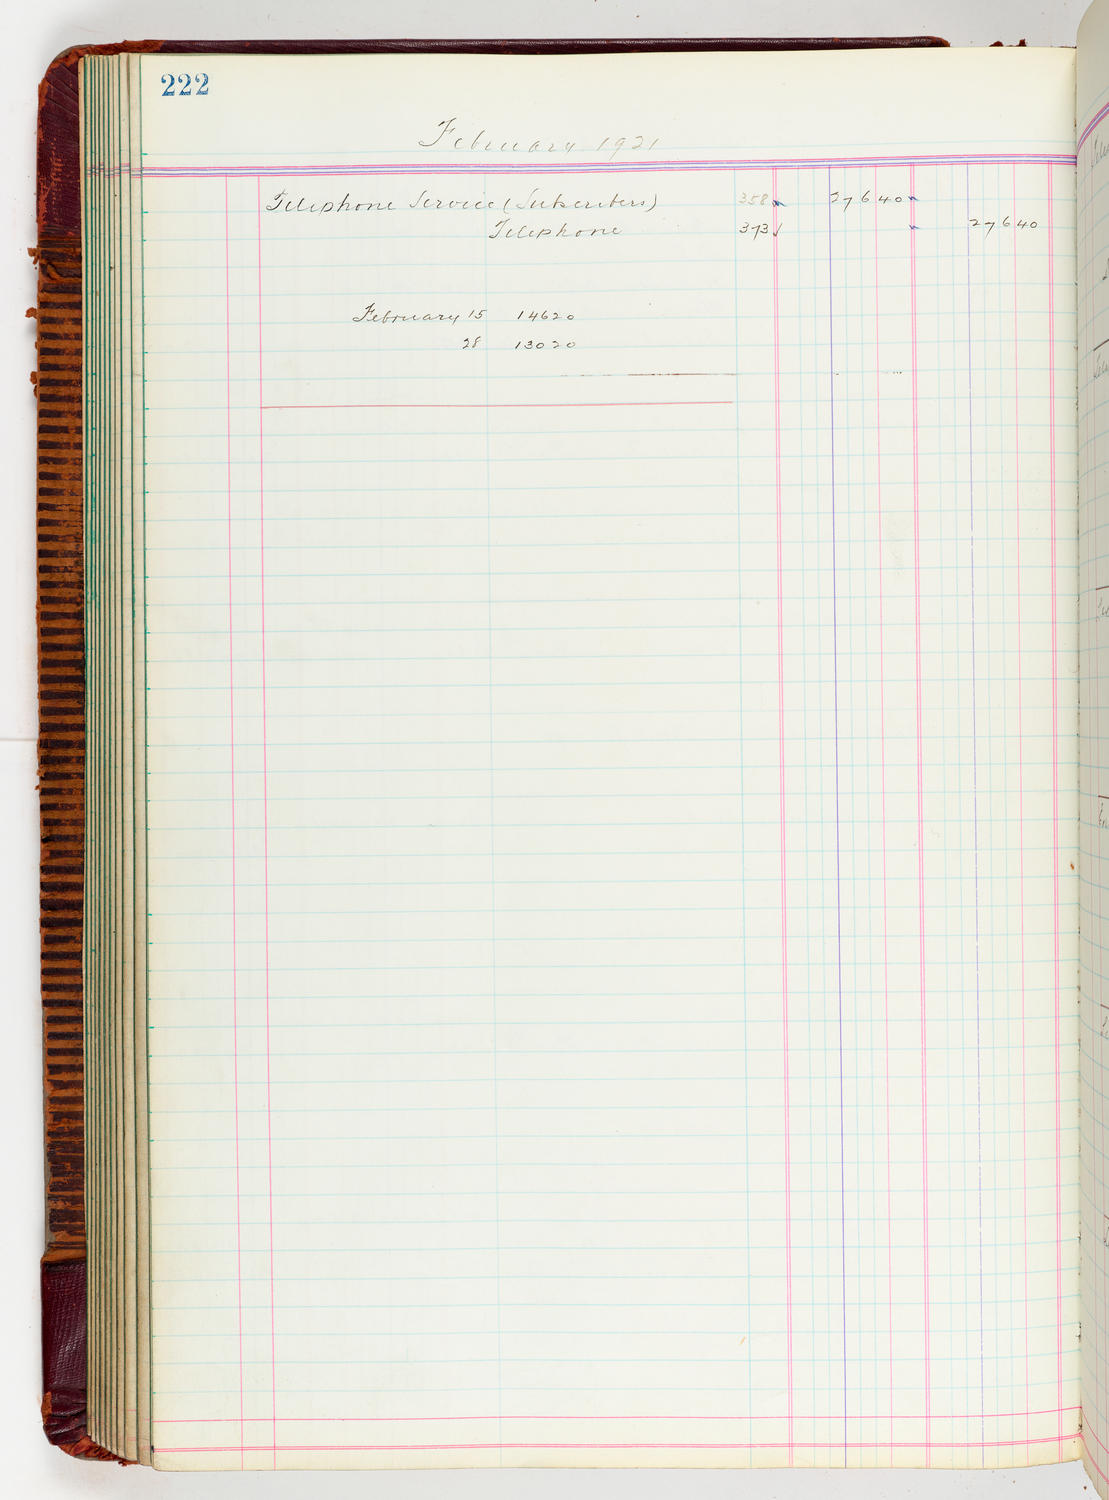 222
February 1921
Telephone Service (Subscribers) 358 276 40
Telephone 373 276 40
February 15 146 20
28 130 20